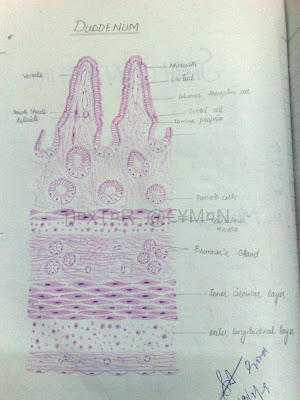 DUODENUM
Venule
Microvilli
Lacteal
Columnar absorptive cell
Smooth Muscle
Goblet cell
Lamina propria
Paneth cells
DOKTOR @EYMON
Brunner's Gland
Inner circular layer
outer longitudinal layer